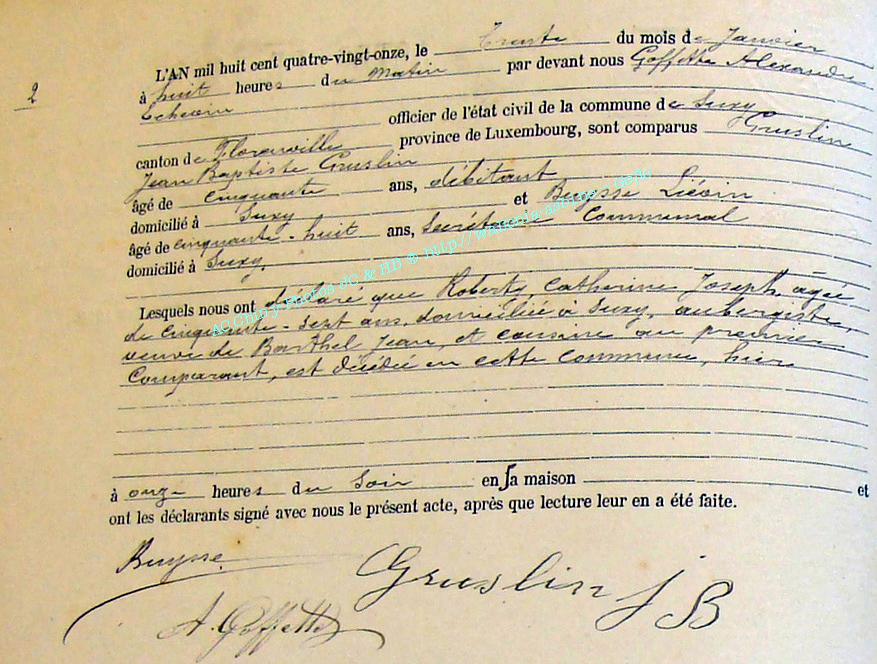 2
L'AN mil huit cent quatre-vingt-onze, le Trente du mois de Janvier
à huit heures du Matin par devant nous Goffette Alexandre
Echevin officier de l'état civil de la commune de Suxy
canton de Florenville province de Luxembourg, sont comparus Gruslin
Jean Baptiste Gruslin
âgé de cinquante ans, débitant
domicilié à Suxy et Buysse Liévin
âgé de cinquante-huit ans, Secrétaire Communal
domicilié à Suxy,
Lesquels nous ont déclaré que Roberty Catherine Joseph, âgée
de cinquante-sept ans, domiciliée à Suxy, aubergiste,
veuve de Barthel Jean, et cousine au premier
Comparant, est décédée en cette commune, hier
à onze heures du Soir en sa maison et
ont les déclarants signé avec nous le présent acte, après que lecture leur en a été faite.
Buysse
Gruslin J B
A. Goffette